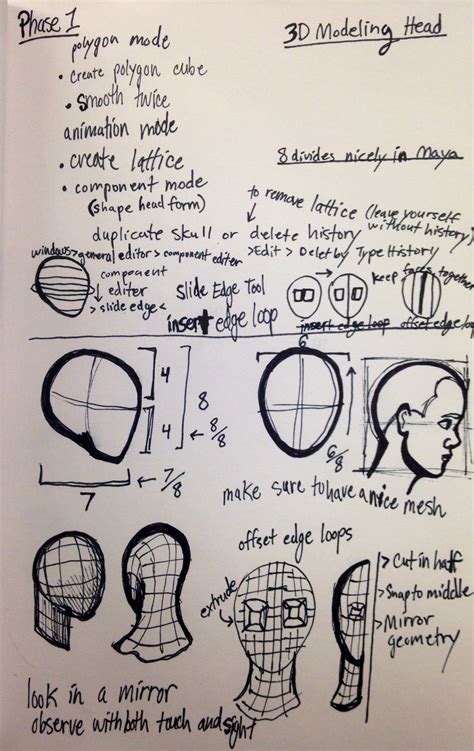 Phase 1
3D Modeling Head
polygon mode
• create polygon cube
• smooth twice
animation mode
• create lattice
8 divides nicely in Maya
• component mode
(shape head form)
to remove lattice (leave yourself
without history)
duplicate skull or delete history
>Edit > Delet by Type History
windows>general editor> component editor
component
editor
> slide edge <
Slide Edge Tool
insert edge loop
keep faces together
insert edge loop
offset edge loop
6
4
8
4
← 8/8
6/8
7
← 7/8
make sure to have a nice mesh
offset edge loops
extrude
> Cut in half
> Snap to middle
> Mirror
geometry
look in a mirror
observe with both touch and sight